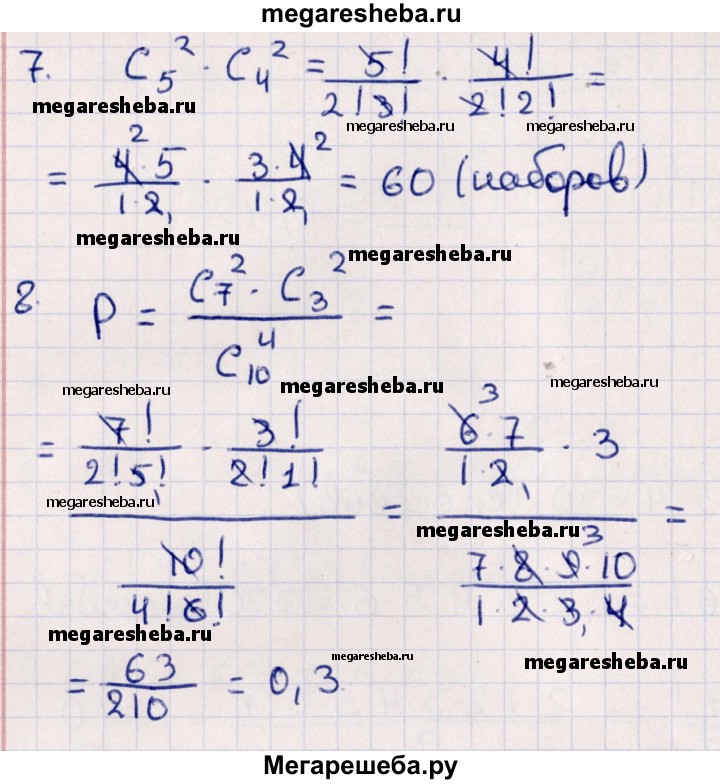 megaresheba.ru
7. C₅² · C₄² = 5!/(2!3!) · 4!/(2!2!) =
megaresheba.ru megaresheba.ru megaresheba.ru
= (4² · 5)/(1 · 2₁) · (3 · 4²)/(1 · 2₁) = 60 (наборов)
megaresheba.ru megaresheba.ru
8. P = (C₇² · C₃²)/C₁₀⁴ =
megaresheba.ru megaresheba.ru megaresheba.ru
= (7!/(2!5!) · 3!/(2!1!))/(10!/(4!6!)) = ((6³ · 7)/(1 · 2₁) · 3)/((7 · 8 · 9³ · 10)/(1 · 2 · 3₁ · 4)) =
megaresheba.ru megaresheba.ru
megaresheba.ru megaresheba.ru megaresheba.ru
= 63/210 = 0,3.
Мегарешеба.ру